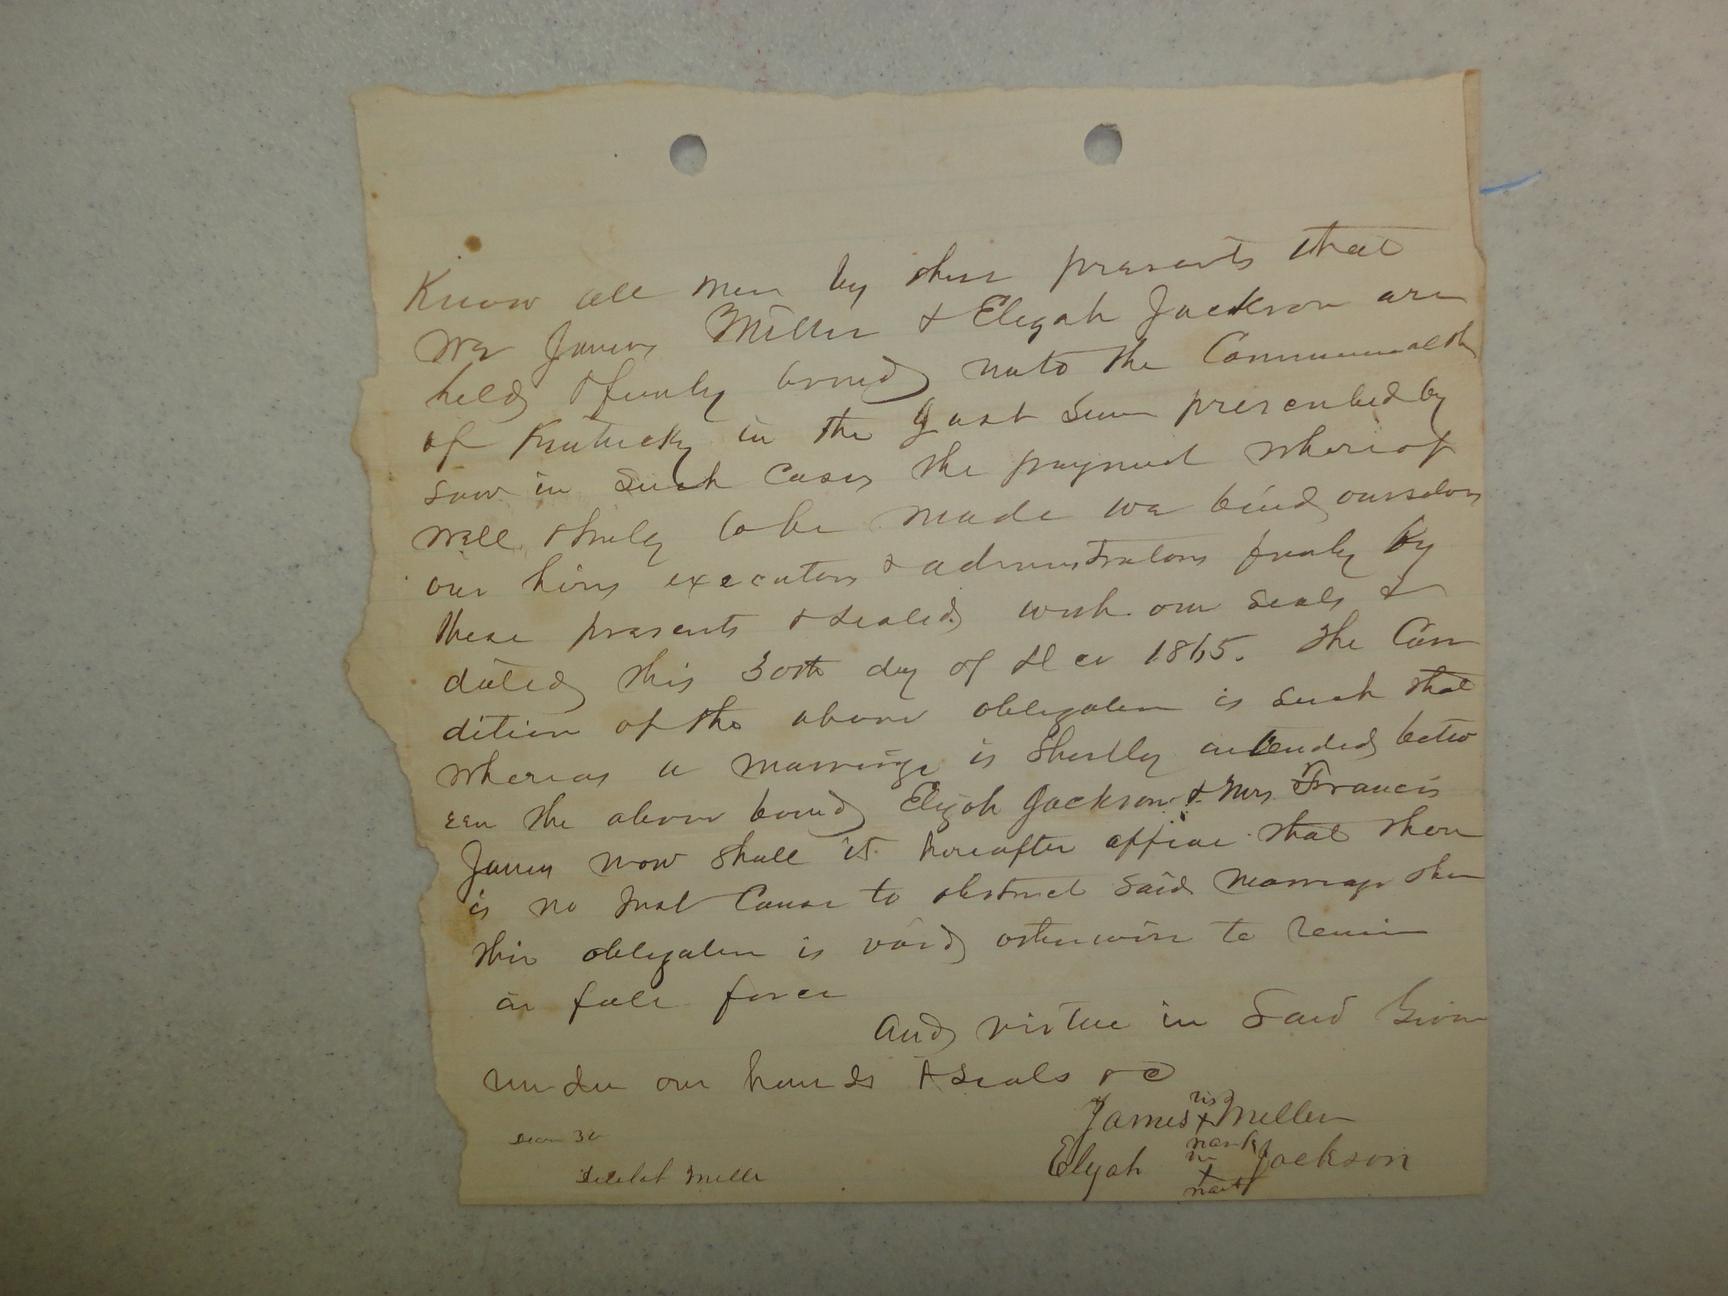 Know all men by these presents that
we James Miller & Elijah Jackson are
held & firmly bound unto the Commonwealth
of Kentucky in the Just Sum prescribed by
Law in Such Cases the payment whereof
well & truly to be made we bind ourselves
our heirs executors & administrators firmly by
these presents & sealed with our seals &
dated this 30th day of Dec 1865. The Con
dition of the above obligation is such that
whereas a marriage is shortly intended betw
een the above bound Elijah Jackson & Mrs. Francis
James now shall it hereafter appear that there
is no Just Cause to obstruct said marriage then
this obligation is void otherwise to remain
in full force
and virtue in Said Given
under our hands & seals &c
James his x mark Miller
Elijah his x mark Jackson
30
Miller